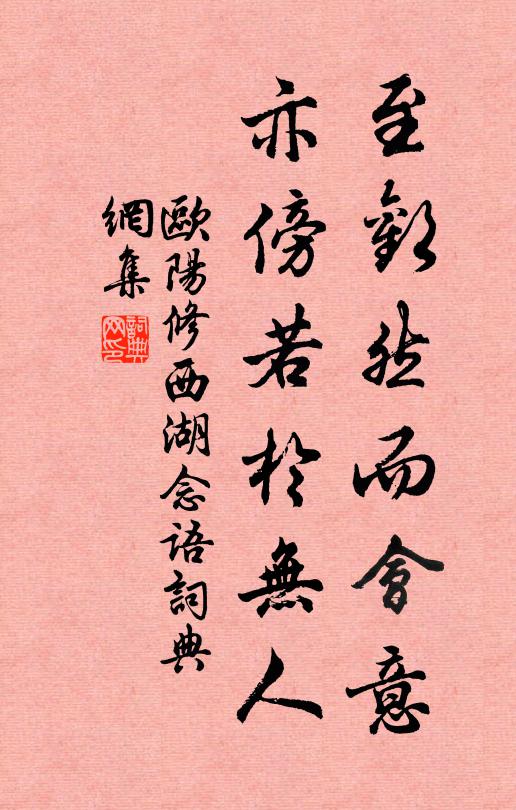 至歡然而會意
亦傍若於無人
歐陽修西湖念語詞典
網集
詞典
网印